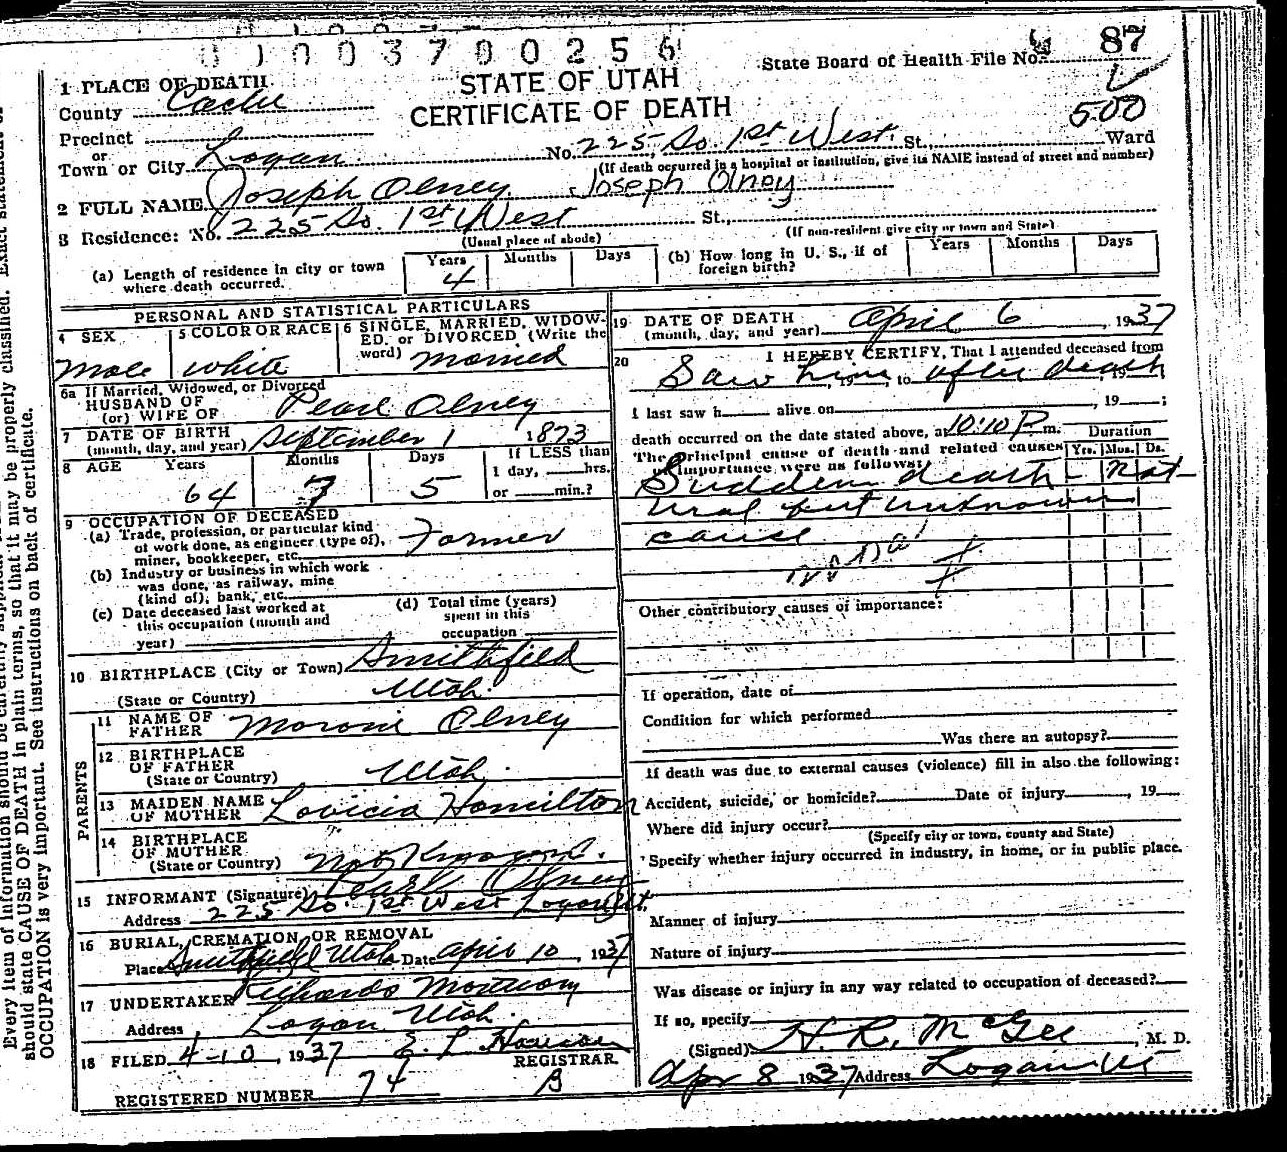 0 1 0 0 3 7 0 0 2 5 6
State Board of Health File No. 87
STATE OF UTAH
CERTIFICATE OF DEATH
500
1 PLACE OF DEATH
County Cache
Precinct
or
Town or City Logan No. 225 So. 1st West. St., Ward
(If death occurred in a hospital or institution, give its NAME instead of street and number)
2 FULL NAME Joseph Olney Joseph Olney
3 Residence: No. 225 So. 1st West St.,
(Usual place of abode) (If non-resident give city or town and State)
(a) Length of residence in city or town where death occurred. Years 4 Months Days
(b) How long in U. S., if of foreign birth? Years Months Days
PERSONAL AND STATISTICAL PARTICULARS
4 SEX Male
5 COLOR OR RACE white
6 SINGLE, MARRIED, WIDOWED, or DIVORCED (Write the word) Married
6a If Married, Widowed, or Divorced
HUSBAND OF
(or) WIFE OF Pearl Olney
7 DATE OF BIRTH
(month, day, and year) September 1 1873
8 AGE Years 64 Months 7 Days 5 If LESS than 1 day, hrs. or min.?
9 OCCUPATION OF DECEASED
(a) Trade, profession, or particular kind
of work done, as engineer (type of),
miner, bookkeeper, etc. Farmer
(b) Industry or business in which work
was done, as railway, mine
(kind of), bank, etc.
(c) Date deceased last worked at
this occupation (month and
year)
(d) Total time (years)
spent in this
occupation
10 BIRTHPLACE (City or Town) Smithfield
(State or Country) Utah.
PARENTS
11 NAME OF FATHER Moroni Olney
12 BIRTHPLACE OF FATHER
(State or Country) Utah.
13 MAIDEN NAME OF MOTHER Lovicia Hamilton
14 BIRTHPLACE OF MOTHER
(State or Country) Not Known.
15 INFORMANT (Signature) Pearl Olney
Address 225 So. 1st West Logan Ut.
16 BURIAL, CREMATION, OR REMOVAL
Place Smithfield Utah Date April 10, 1937
17 UNDERTAKER Richards Mortuary
Address Logan Utah.
18 FILED 4-10, 1937 E. L. Hanson
REGISTRAR
REGISTERED NUMBER 74 B
19 DATE OF DEATH
(month, day, and year) April 6, 1937
20 I HEREBY CERTIFY, That I attended deceased from
Saw him, 19 , to after death, 19 ;
I last saw h alive on , 19 ;
death occurred on the date stated above, at 10:10 P. m.
The principal cause of death and related causes
of importance were as follows:
Duration
Yrs. Mos. Ds.
Sudden death - Nat-
ural but unknown
cause
Other contributory causes of importance:
If operation, date of
Condition for which performed
Was there an autopsy?
If death was due to external causes (violence) fill in also the following:
Accident, suicide, or homicide? Date of injury , 19
Where did injury occur?
(Specify city or town, county and State)
Specify whether injury occurred in industry, in home, or in public place.
Manner of injury
Nature of injury
Was disease or injury in any way related to occupation of deceased?
If so, specify
(Signed) H. R. McGee, M. D.
Apr 8 1937 Address Logan Ut
should state CAUSE OF DEATH in plain terms, so that it may be properly classified. Exact statement of
OCCUPATION is very important. See instructions on back of certificate.